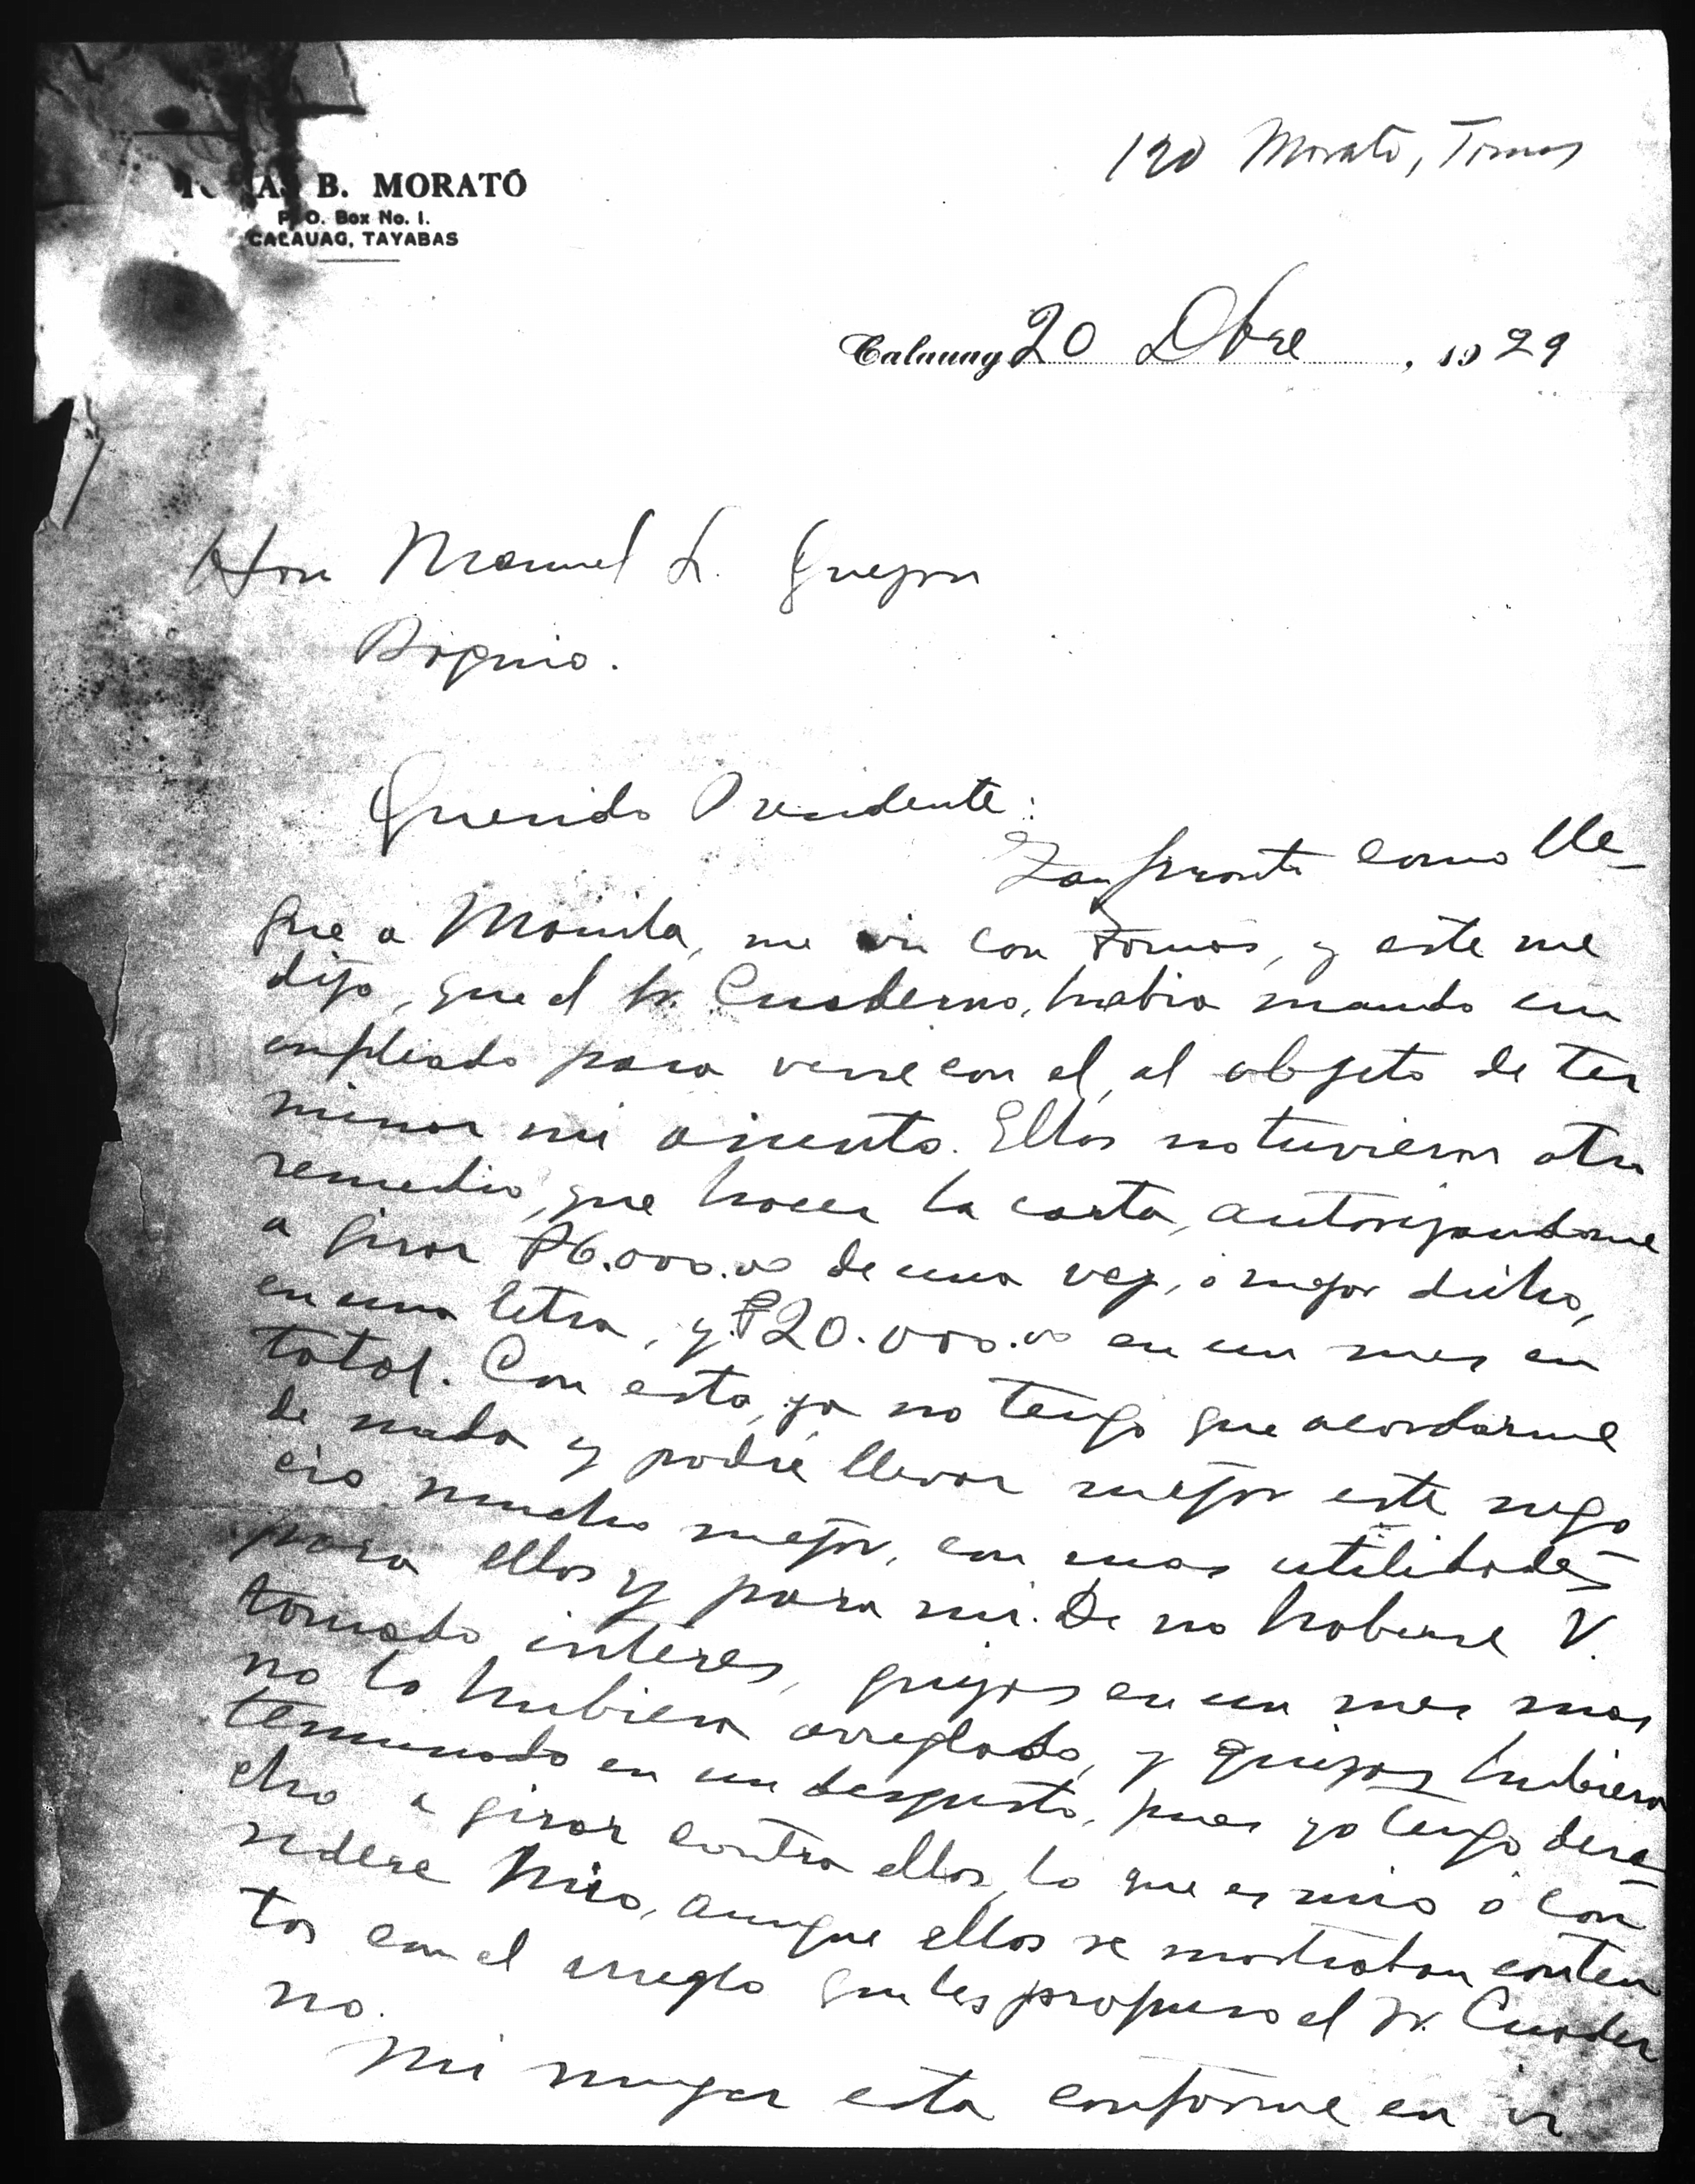 190 Morato, Tomas
TOMAS B. MORATÓ
P. O. Box No. 1.
CALAUAG, TAYABAS
Calauag 20 Dbre, 1929
Hon Manuel L. Quezon
Baguio.
Querido Presidente:
Tan pronto como lle-
gue a Manila, me vi con Tomas, y este me
dijo, que el Sr. Cuaderno, habia mando un
empleado para verse con el, al objeto de ter
minar mi asunto. Ellos no tuvieron otro
remedio, que hacer la carta, autorizandome
a girar ₱6.000.00 de una vez, o mejor dicho,
en una letra, y ₱20.000.00 en un mes en
total. Con esto, ya no tengo que acordarme
de nada y podré llevar mejor este nego
cio mucho mejor, con mas utilidades
para ellos y para mi. De no haberse V.
tomado interes, quizas en un mes mas
no lo hubiera arreglado, y quizas hubiera
terminado en un desgusto, pues yo tengo dere-
cho a girar contra ellos, lo que es mio o con
sidere mio, aunque ellos se mostraban conten
tos con el arreglo que les propuso el Sr. Cuader
no.
Mi mujer esta conforme en ir